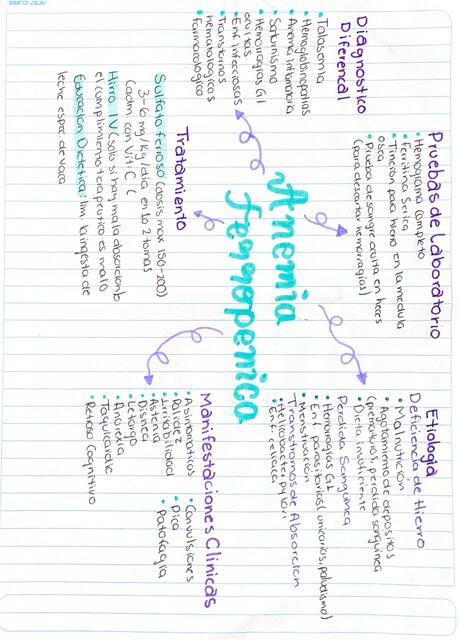 Anemia
ferropenica
Diagnostico
Diferencial
• Talasemia
• Hemoglobinopatias
• Anemia inflamatoria
• Saturnismo
• Hemorragias GI
ocultas
• Enf. infecciosas
• Transtornos
hematologicos
• Farmacologico
Pruebas de Laboratorio
• Hemograma completo
• Ferritina Serica
• Tinción para hierro en la medula
osea
• Prueba de sangre oculta en heces
(para descartar hemorragias)
Tratamiento
Sulfato ferroso (dosis max 150-200)
3-6 mg/kg/dia en 1 o 2 tomas
(adm. con Vit: C (
Hirro IV (solo si hay mala absorcion o
el cumplimiento terapeutico es malo)
Educacion Dietetica: lim. la ingesta de
leche espec. de vaca
Etiologia
Deficiencia de Hierro
• Malnutrición
• Agotamiento de depositos
(prematuros, perdida sanguinea
• Dieta insuficiente
Perdida Sanguinea
• Hemorragias GI
• Enf. parasitarias (uncinarios, paludismo)
• Menstruación
Transtornos de Absorcion
• Helicobacter pylori
• Enf. celiaca
Manifestaciones Clinicas
• Asintomaticos
• Palidez
• Irritabilidad
• Astenia
• Disnea
• Letargo
• Anorexia
• Taquicardia
• Retraso Cognitivo
• Convulsiones
• Pica
• Patofagia